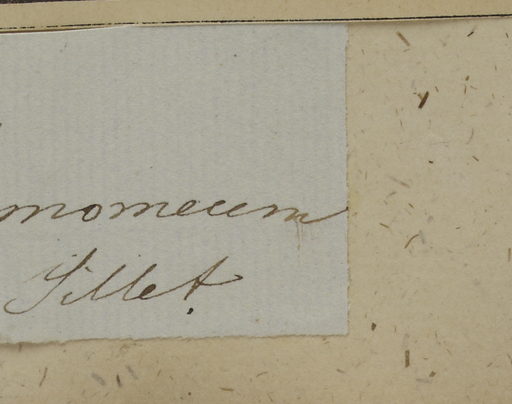 momeum
Sillet.